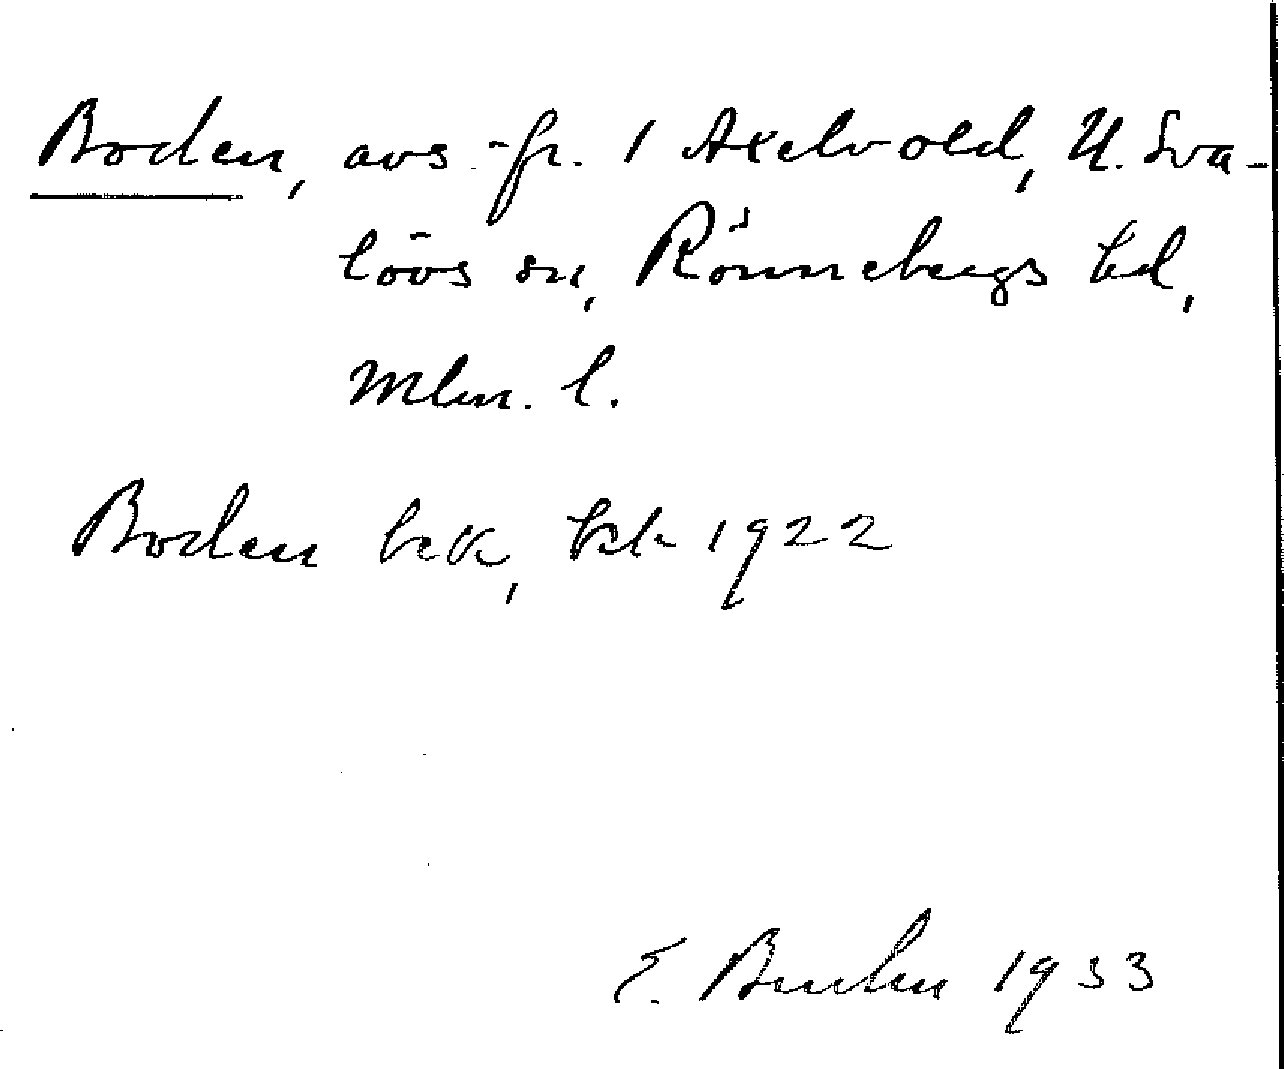 Boden, avs. fr. 1 Axelvold, N. Sva-
lövs sn, Rönnebergs hd,
Mlm. l.
Boden bek, Ek 1922
E. 1933